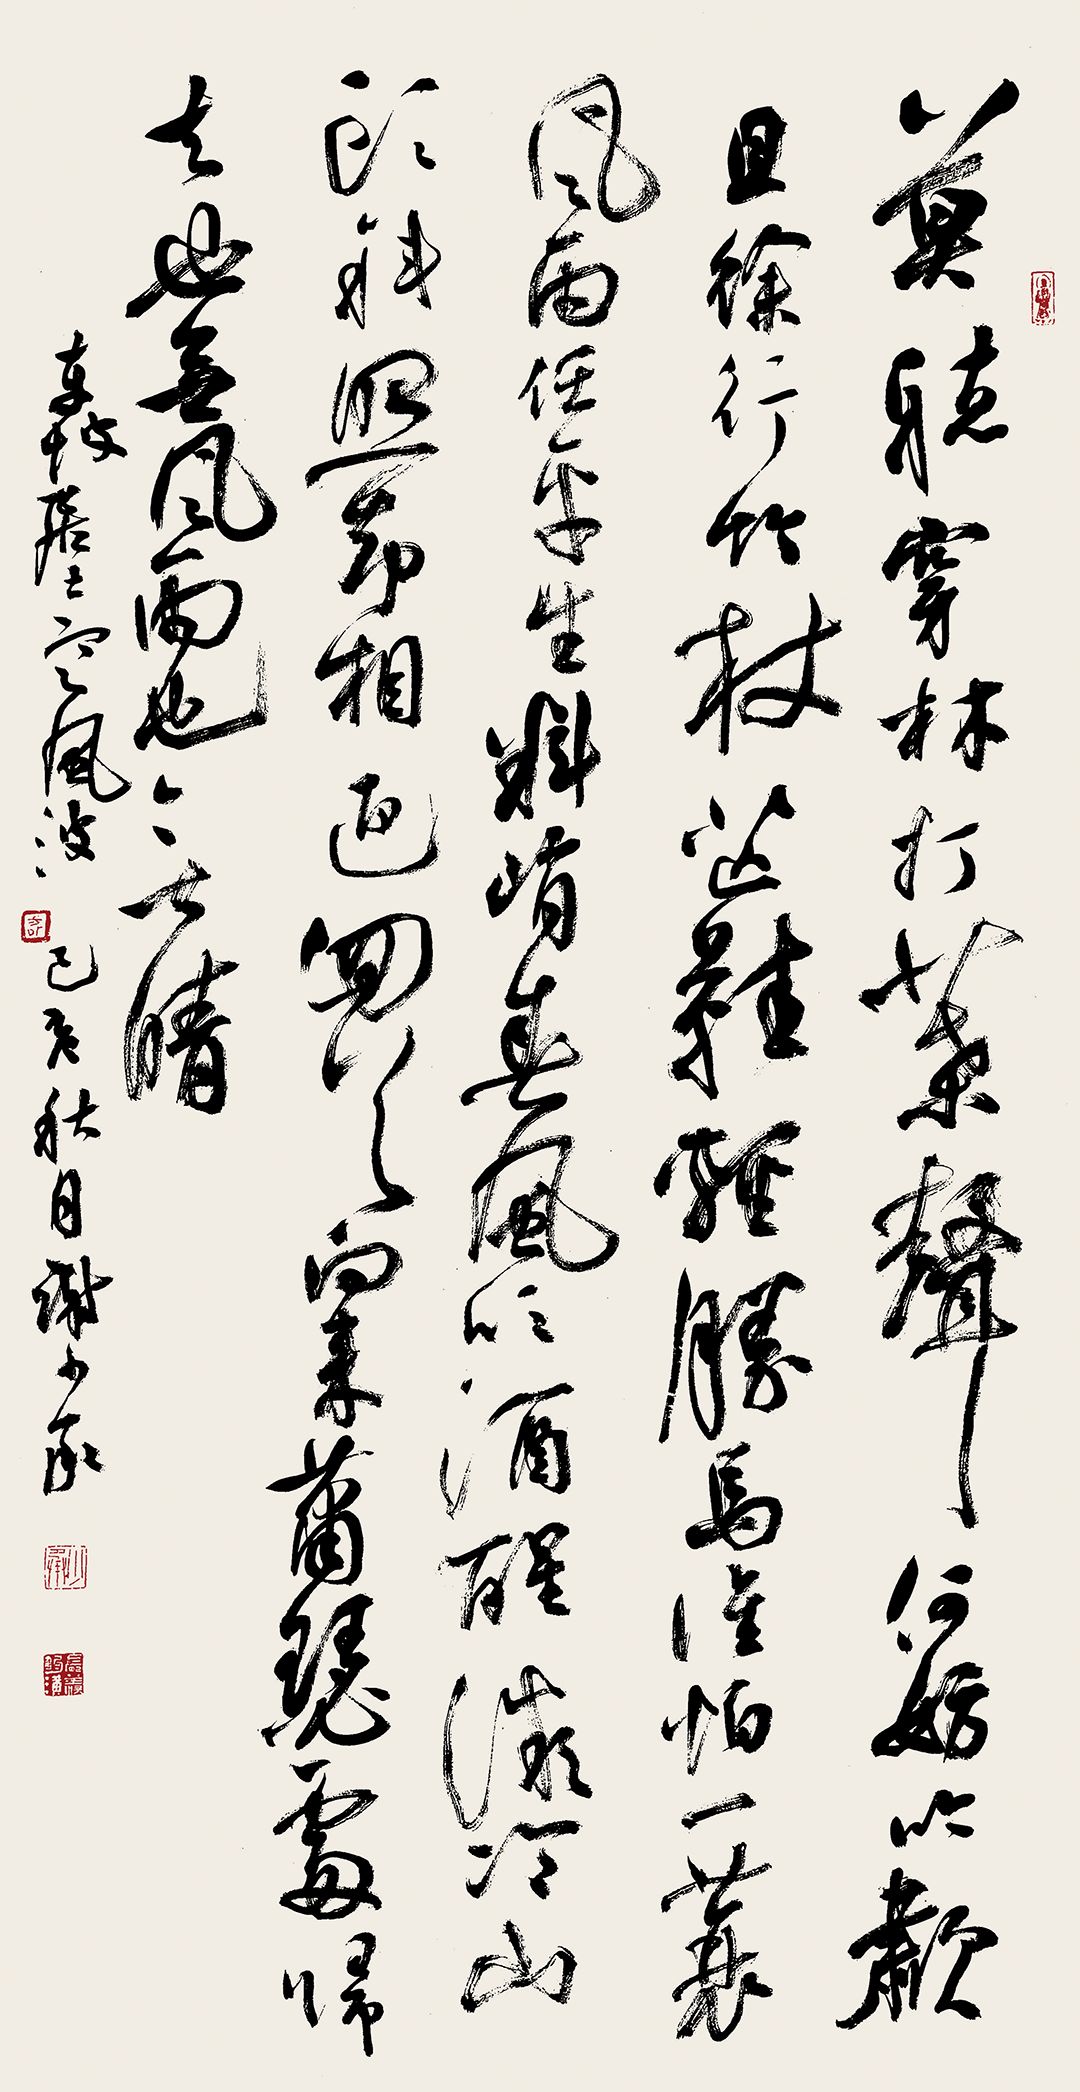 莫聽穿林打葉聲何妨吟歗
且徐行竹杖芒鞋輕勝馬誰怕一蓑
風雨任平生料峭春風吹酒醒微冷山
頭斜照却相迎回首向來蕭瑟處歸
去也無風雨也無晴
東坡居士定風波 己亥秋月謝少承